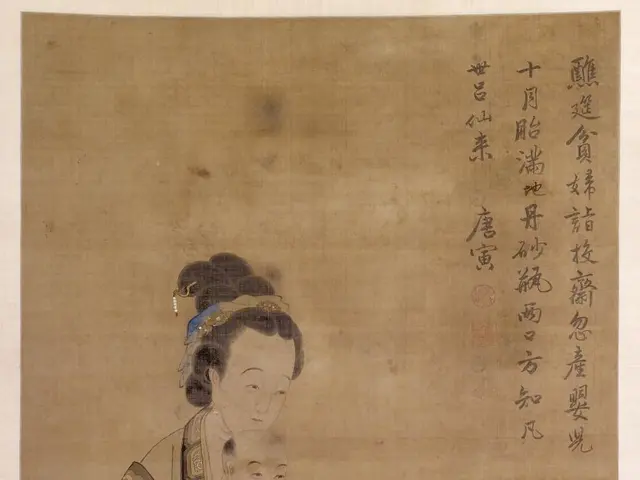 醮筵貧婦詣投齋忽產嬰兒
十月胎滿地丹砂瓶兩口方知凡
世呂仙來
唐寅